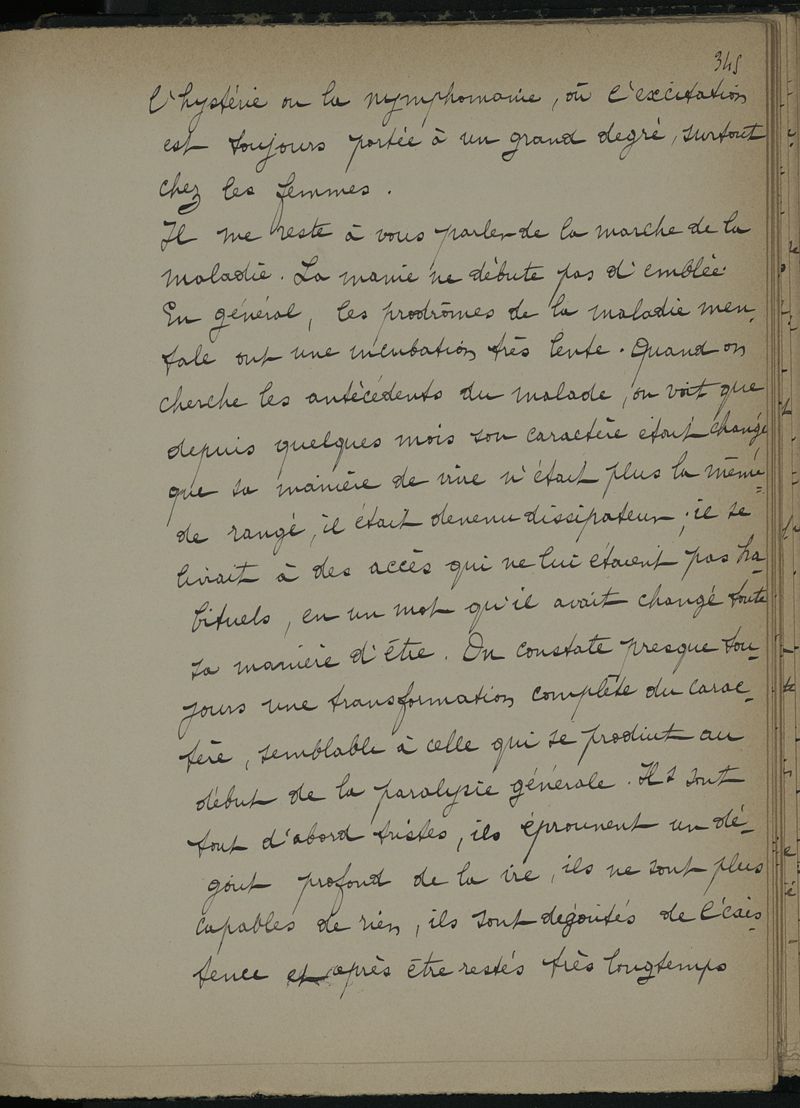 345
l'hystérie ou la nymphomanie, où l'excitation
est toujours portée à un grand degré, surtout
chez les femmes.
Il me reste à vous parler de la marche de la
maladie. La manie ne débute pas d'emblée
En général, les prodrômes de la maladie men-
tale ont une incubation très lente. Quand on
cherche les antécédents du malade, on voit que
depuis quelques mois son caractère était changé
que sa manière de vivre n'était plus la même
de rangé, il était devenu dissipateur; il se
livrait à des accès qui ne lui étaient pas ha-
bituels, en un mot qu'il avait changé toute
sa manière d'être. On constate presque tou-
jours une transformation complète du carac-
tère, semblable à celle qui se produit au
début de la paralysie générale. Ils sont
tout d'abord tristes, ils éprouvent un dé-
goût profond de la vie, ils ne sont plus
capables de rien, ils sont dégoûtés de l'éxis-
tence et après être restés très longtemps